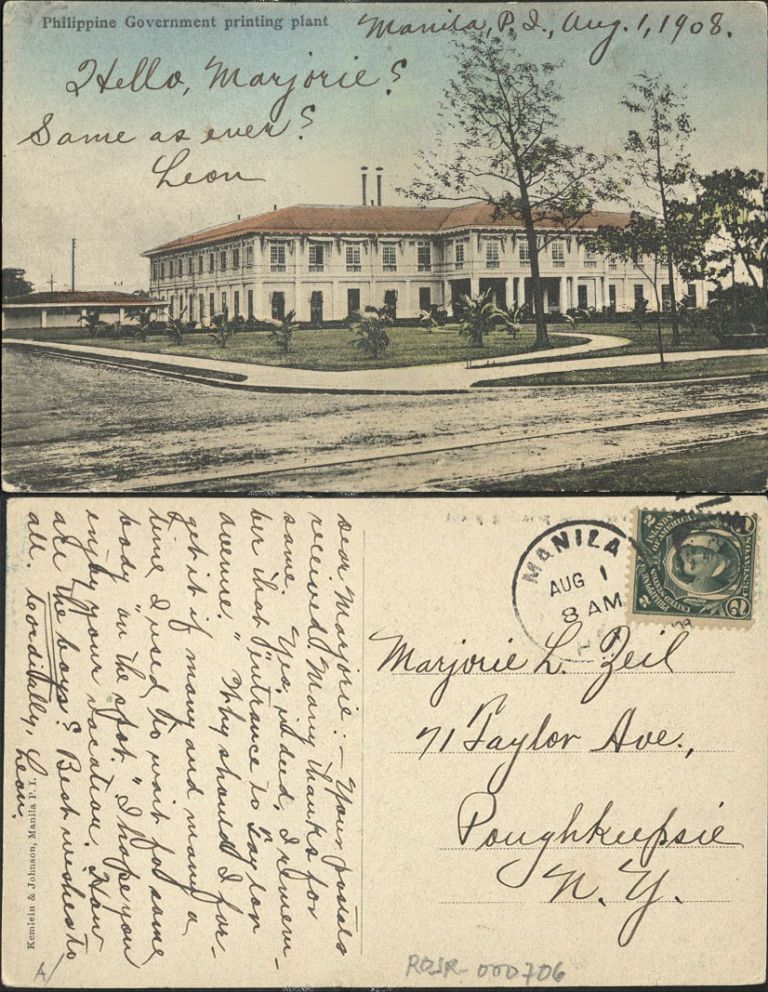 Philippine Government printing plant
Manila, P.I., Aug. 1, 1908.
Hello, Marjorie?
Same as ever?
Leon
Dear Marjorie:— Your postals
received. Many thanks for
same. Yes, indeed, I remem-
ber that "entrance to Taylor
avenue." Why should I for-
get it if many and many a
time I used to wait for some
body "on the spot." I hope you
enjoy your vacation. How
are the boys? Best wishes to
all. Cordially, Leon.
Kemlein & Johnson, Manila P. I.
MANILA
AUG 1
8 AM
PHILIPPINE
ISLANDS
UNITED STATES
OF AMERICA
2 CENTAVOS 2
Marjorie L. Zeil
71 Taylor Ave.,
Poughkeepsie
N. Y.
A/
ROSR-000706